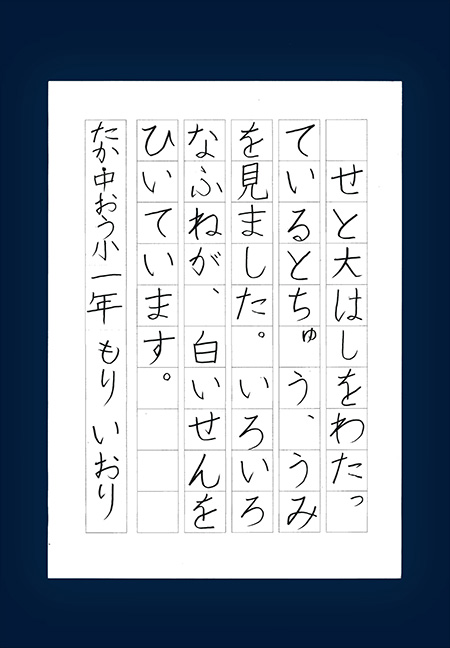 せと大はしをわたっ
ているとちゅう、うみ
を見ました。いろいろ
なふねが、白いせんを
ひいています。
たか・中おう小一年 もり いおり